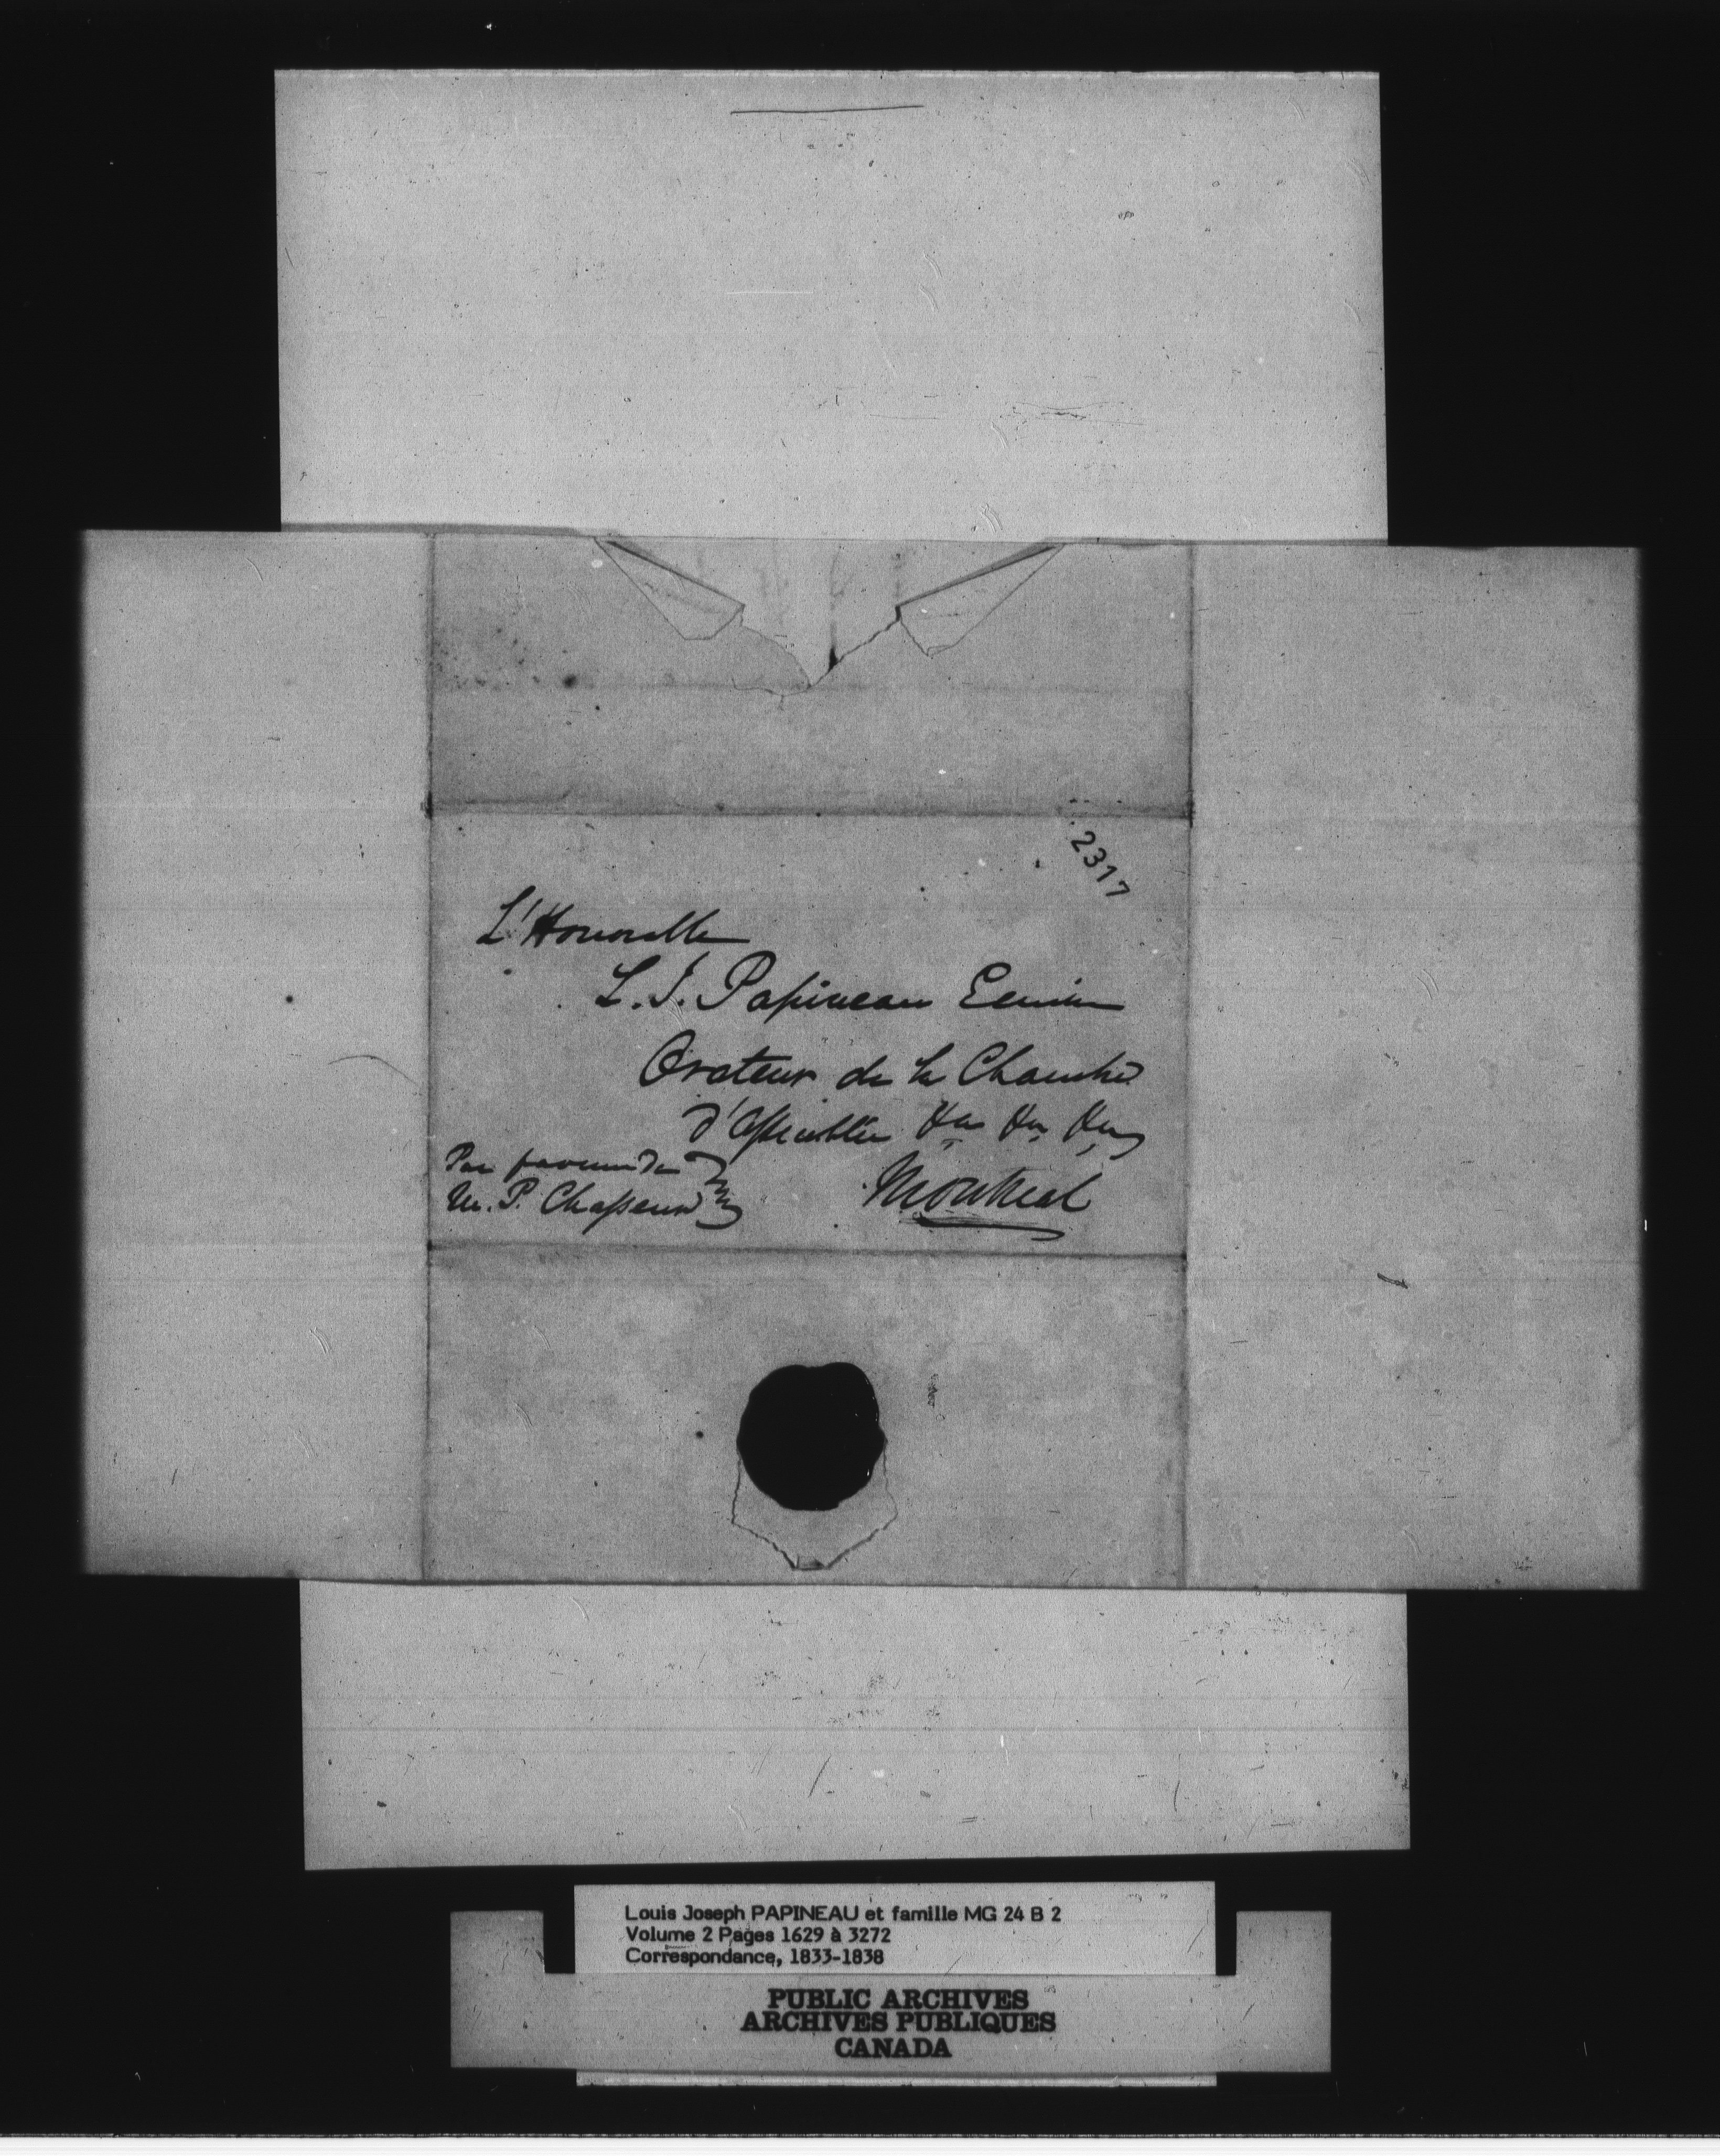 2317
L'Honorable
L. J. Papineau Ecuier
Orateur de la Chambre
d'Assemblée &c &c &c
Par faveur de
M. P. Chasseur
Montreal
Louis Joseph PAPINEAU et famille MG 24 B 2
Volume 2 Pages 1629 à 3272
Correspondance, 1833-1838
PUBLIC ARCHIVES
ARCHIVES PUBLIQUES
CANADA